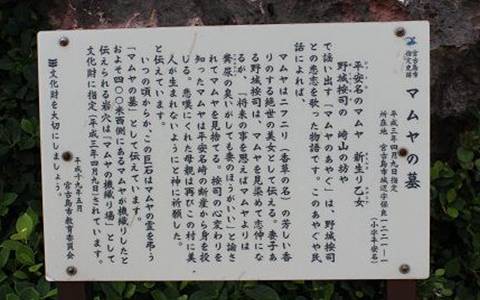 宮古島市
指定史跡
マムヤの墓
平成三年四月九日指定
所在地　宮古島市城辺字保良一二二一ー一
（小字平安名）
平安名のマムヤ　新生り乙女
野城按司の　崎山の坊や
で謡い出す「マムヤのあやぐ」は、野城按司
との悲恋を歌った物語です。このあやぐや民
話によれば、
マムヤはニフニリ（香草の名）の芳しい香
りのする絶世の美女として伝える。妻子あ
る野城按司は、マムヤを見染めて恋仲にな
るが、「将来の事を思えばマムヤよりは
糞尿の臭いがしても妻のほうがいい」と諭さ
れてマムヤを見捨てる。按司の心変わりを
知ったマムヤは平安名崎の断崖から身を投
じる。悲嘆にくれた母親は再びこの村に美
人が生まれないようにと神に祈願した。
と伝えています。
いつの頃からか、この巨石はマムヤの霊を弔う
「マムヤの墓」として伝えています。
およそ四〇〇米西側にあるマムヤが機織りしたと
伝えられる岩穴は「マムヤの機織り場」として
文化財に指定（平成三年四月九日）されています。
文化財を大切にしましょう
平成十九年五月
宮古島市教育委員会